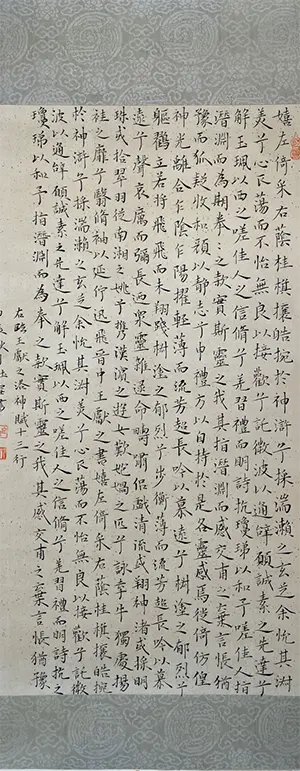 嬉左倚采右蔭桂旗攘皓捥於神滸兮採湍瀨之玄芝余忱其淑
美兮心振蕩而不怡無良以接歡兮託微波以通辭願誠素之先達兮
解玉珮以而之嗟佳人之信脩兮羌習禮而明詩抗瓊珶以和予嗟佳人指
潛淵而為期奉之款實斯靈之我其指潛淵而感交甫之棄言悵猶
豫而狐疑收和顏以靜志兮申禮方以自持於是靈感焉徙倚仿偟
神光離合乍陰乍陽擢輕薄而流芳超長吟以慕遠兮桂塗之郁烈兮
軀鶴立若將飛而未翔踐桂塗之郁烈兮步衡薄而流芳超長吟以慕
遠兮聲哀厲而彌長迺眾靈雜遝命疇嘯侶戲清流或翔神渚或採明
珠或拾翠羽從南湘之姚兮攜漢濱之遊女歎媧之匹兮詠牽牛獨處揚
袿之靡兮翳脩袖以延佇迅飛晉中王獻之書嬉左倚采右蔭桂旗攘皓捥
於神滸兮採湍瀨之玄芝余忱其淑美兮心振蕩而不怡無良以接歡兮託微
波以通辭願誠素之先達兮解玉珮以而之嗟佳人之信脩兮羌習禮而明詩抗之
瓊珶以和予兮指潛淵而為奉之款實斯靈之我其感交甫之棄言悵猶豫
右臨王獻之洛神賦十三行